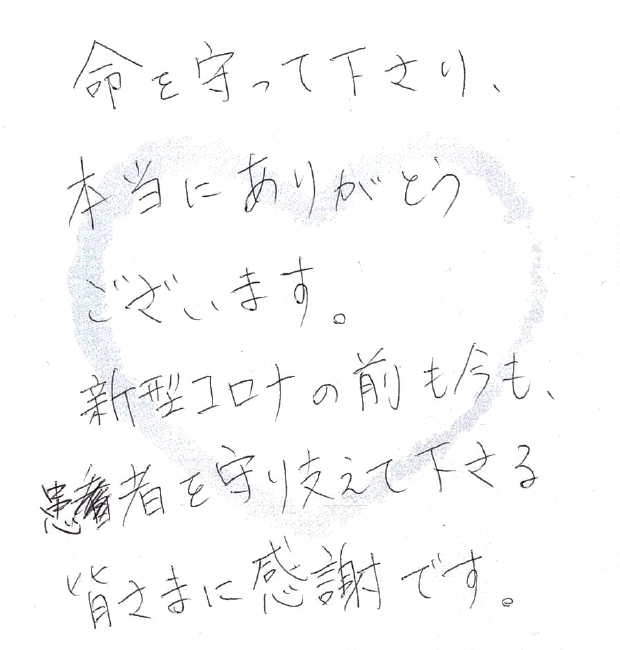 命を守って下さり、
本当にありがとう
ございます。
新型コロナの前も今も、
患者を守り支えて下さる
皆さまに感謝です。